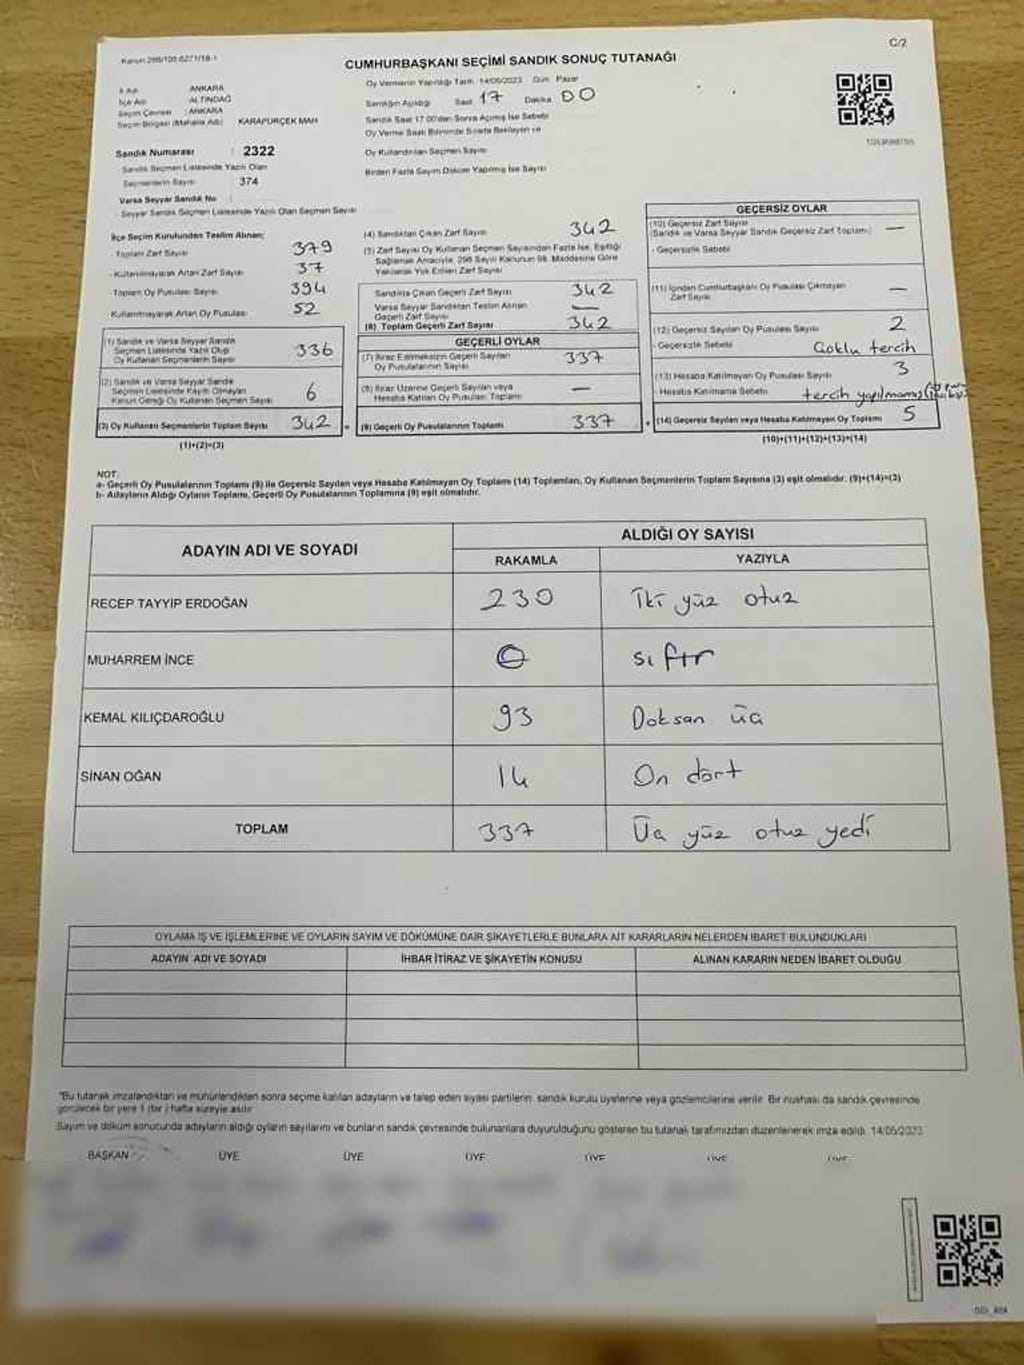 C/2
CUMHURBAŞKANI SEÇİMİ SANDIK SONUÇ TUTANAĞI
İl Adı ANKARA
İlçe Adı ALTINDAĞ
Seçim Çevresi : ANKARA
Seçim Bölgesi (Mahalle Adı) KARAPÜRÇEK MAH
Sandık Numarası : 2322
Sandık Seçmen Listesinde Yazılı Olan
Seçmenlerin Sayısı 374
Varsa Seyyar Sandık No
Seyyar Sandık Seçmen Listesinde Yazılı Olan Seçmen Sayısı
Oy Vermenin Yapıldığı Tarih 14/05/2023 Gün Pazar
Sandığın Açıldığı Saat 17 Dakika 00
Sandık Saat 17.00'den Sonra Açılmış İse Sebebi
Oy Verme Saati Bitiminde Sırada Bekleyen ve
Oy Kullandırılan Seçmen Sayısı
Birden Fazla Sayım Döküm Yapılmış İse Sayısı
İlçe Seçim Kurulundan Teslim Alınan;
Toplam Zarf Sayısı 379
Kullanılmayarak Artan Zarf Sayısı 37
Toplam Oy Pusulası Sayısı 394
Kullanılmayarak Artan Oy Pusulası 52
(1) Sandık ve Varsa Seyyar Sandık
Seçmen Listesinde Yazılı Olup
Oy Kullanan Seçmenlerin Sayısı 336
(2) Sandık ve Varsa Seyyar Sandık
Seçmen Listesinde Kayıtlı Olmayan
Kanun Gereği Oy Kullanan Seçmen Sayısı 6
(3) Oy Kullanan Seçmenlerin Toplam Sayısı 342
(1)+(2)=(3)
(4) Sandıktan Çıkan Zarf Sayısı 342
(5) Zarf Sayısı Oy Kullanan Seçmen Sayısından Fazla İse, Eşitliği
Sağlamak Amacıyla, 298 Sayılı Kanunun 98. Maddesine Göre
Yakılarak Yok Edilen Zarf Sayısı
Sandıkta Çıkan Geçerli Zarf Sayısı 342
Varsa Seyyar Sandıktan Teslim Alınan
Geçerli Zarf Sayısı —
(6) Toplam Geçerli Zarf Sayısı 342
GEÇERLİ OYLAR
(7) İtiraz Edilmeksizin Geçerli Sayılan
Oy Pusulalarının Sayısı 337
(8) İtiraz Üzerine Geçerli Sayılan veya
Hesaba Katılan Oy Pusulası Toplamı —
(9) Geçerli Oy Pusulalarının Toplamı 337
GEÇERSİZ OYLAR
(10) Geçersiz Zarf Sayısı
(Sandık ve Varsa Seyyar Sandık Geçersiz Zarf Toplamı) —
- Geçersizlik Sebebi
(11) İçinden Cumhurbaşkanı Oy Pusulası Çıkmayan
Zarf Sayısı —
(12) Geçersiz Sayılan Oy Pusulası Sayısı 2
- Geçersizlik Sebebi Çoklu tercih
(13) Hesaba Katılmayan Oy Pusulası Sayısı 3
- Hesaba Katılmama Sebebi tercih yapılmamış
(14) Geçersiz Sayılan veya Hesaba Katılmayan Oy Toplamı 5
(10)+(11)+(12)+(13)=(14)
NOT:
a- Geçerli Oy Pusulalarının Toplamı (9) ile Geçersiz Sayılan veya Hesaba Katılmayan Oy Toplamı (14) Toplamları, Oy Kullanan Seçmenlerin Toplam Sayısına (3) eşit olmalıdır. (9)+(14)=(3)
b- Adayların Aldığı Oyların Toplamı, Geçerli Oy Pusulalarının Toplamına (9) eşit olmalıdır.
ADAYIN ADI VE SOYADI ALDIĞI OY SAYISI
RAKAMLA YAZIYLA
RECEP TAYYİP ERDOĞAN 230 İki yüz otuz
MUHARREM İNCE 0 sıfır
KEMAL KILIÇDAROĞLU 93 Doksan üç
SİNAN OĞAN 14 On dört
TOPLAM 337 Üç yüz otuz yedi
OYLAMA İŞ VE İŞLEMLERİNE VE OYLARIN SAYIM VE DÖKÜMÜNE DAİR ŞİKAYETLERLE BUNLARA AİT KARARLARIN NELERDEN İBARET BULUNDUKLARI
ADAYIN ADI VE SOYADI İHBAR İTİRAZ VE ŞİKAYETİN KONUSU ALINAN KARARIN NEDEN İBARET OLDUĞU
"Bu tutanak imzalandıktan ve mühürlendikten sonra seçime katılan adayların ve talep eden siyasi partilerin, sandık kurulu üyelerine veya gözlemcilerine verilir. Bir nüshası da sandık çevresinde
görülecek bir yere 1 (bir) hafta süreyle asılır
Sayım ve döküm sonucunda adayların aldığı oyların sayılarını ve bunların sandık çevresinde bulunanlara duyurulduğunu gösteren bu tutanak tarafımızdan düzenlenerek imza edildi. 14/05/2023
BAŞKAN ÜYE ÜYE ÜYE ÜYE ÜYE ÜYE